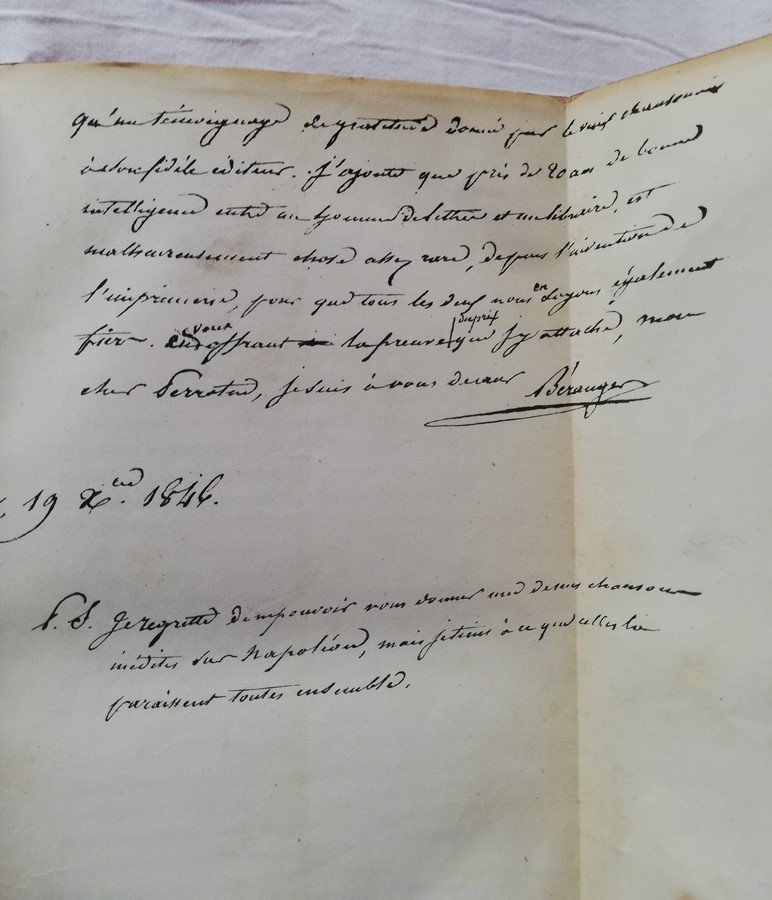 qu'un témoignage de gratitude donné par le vieux chansonnier
à son fidèle éditeur. J'ajoute que près de 20 ans de bonne
intelligence entre un homme de lettres et un libraire, est
malheureusement chose assez rare, depuis l'invention de
l'imprimerie, pour que tous les deux nous en soyons également
fiers. vous offrant la preuve du prix que j'y attache, mon
cher Perrotin, je suis à vous de cœur Béranger
19 Xbre. 1846.
P. S. Je regrette de ne pouvoir vous donner une de mes chansons
inédites sur Napoléon, mais je tiens à ce que celles-là
paraissent toutes ensemble.